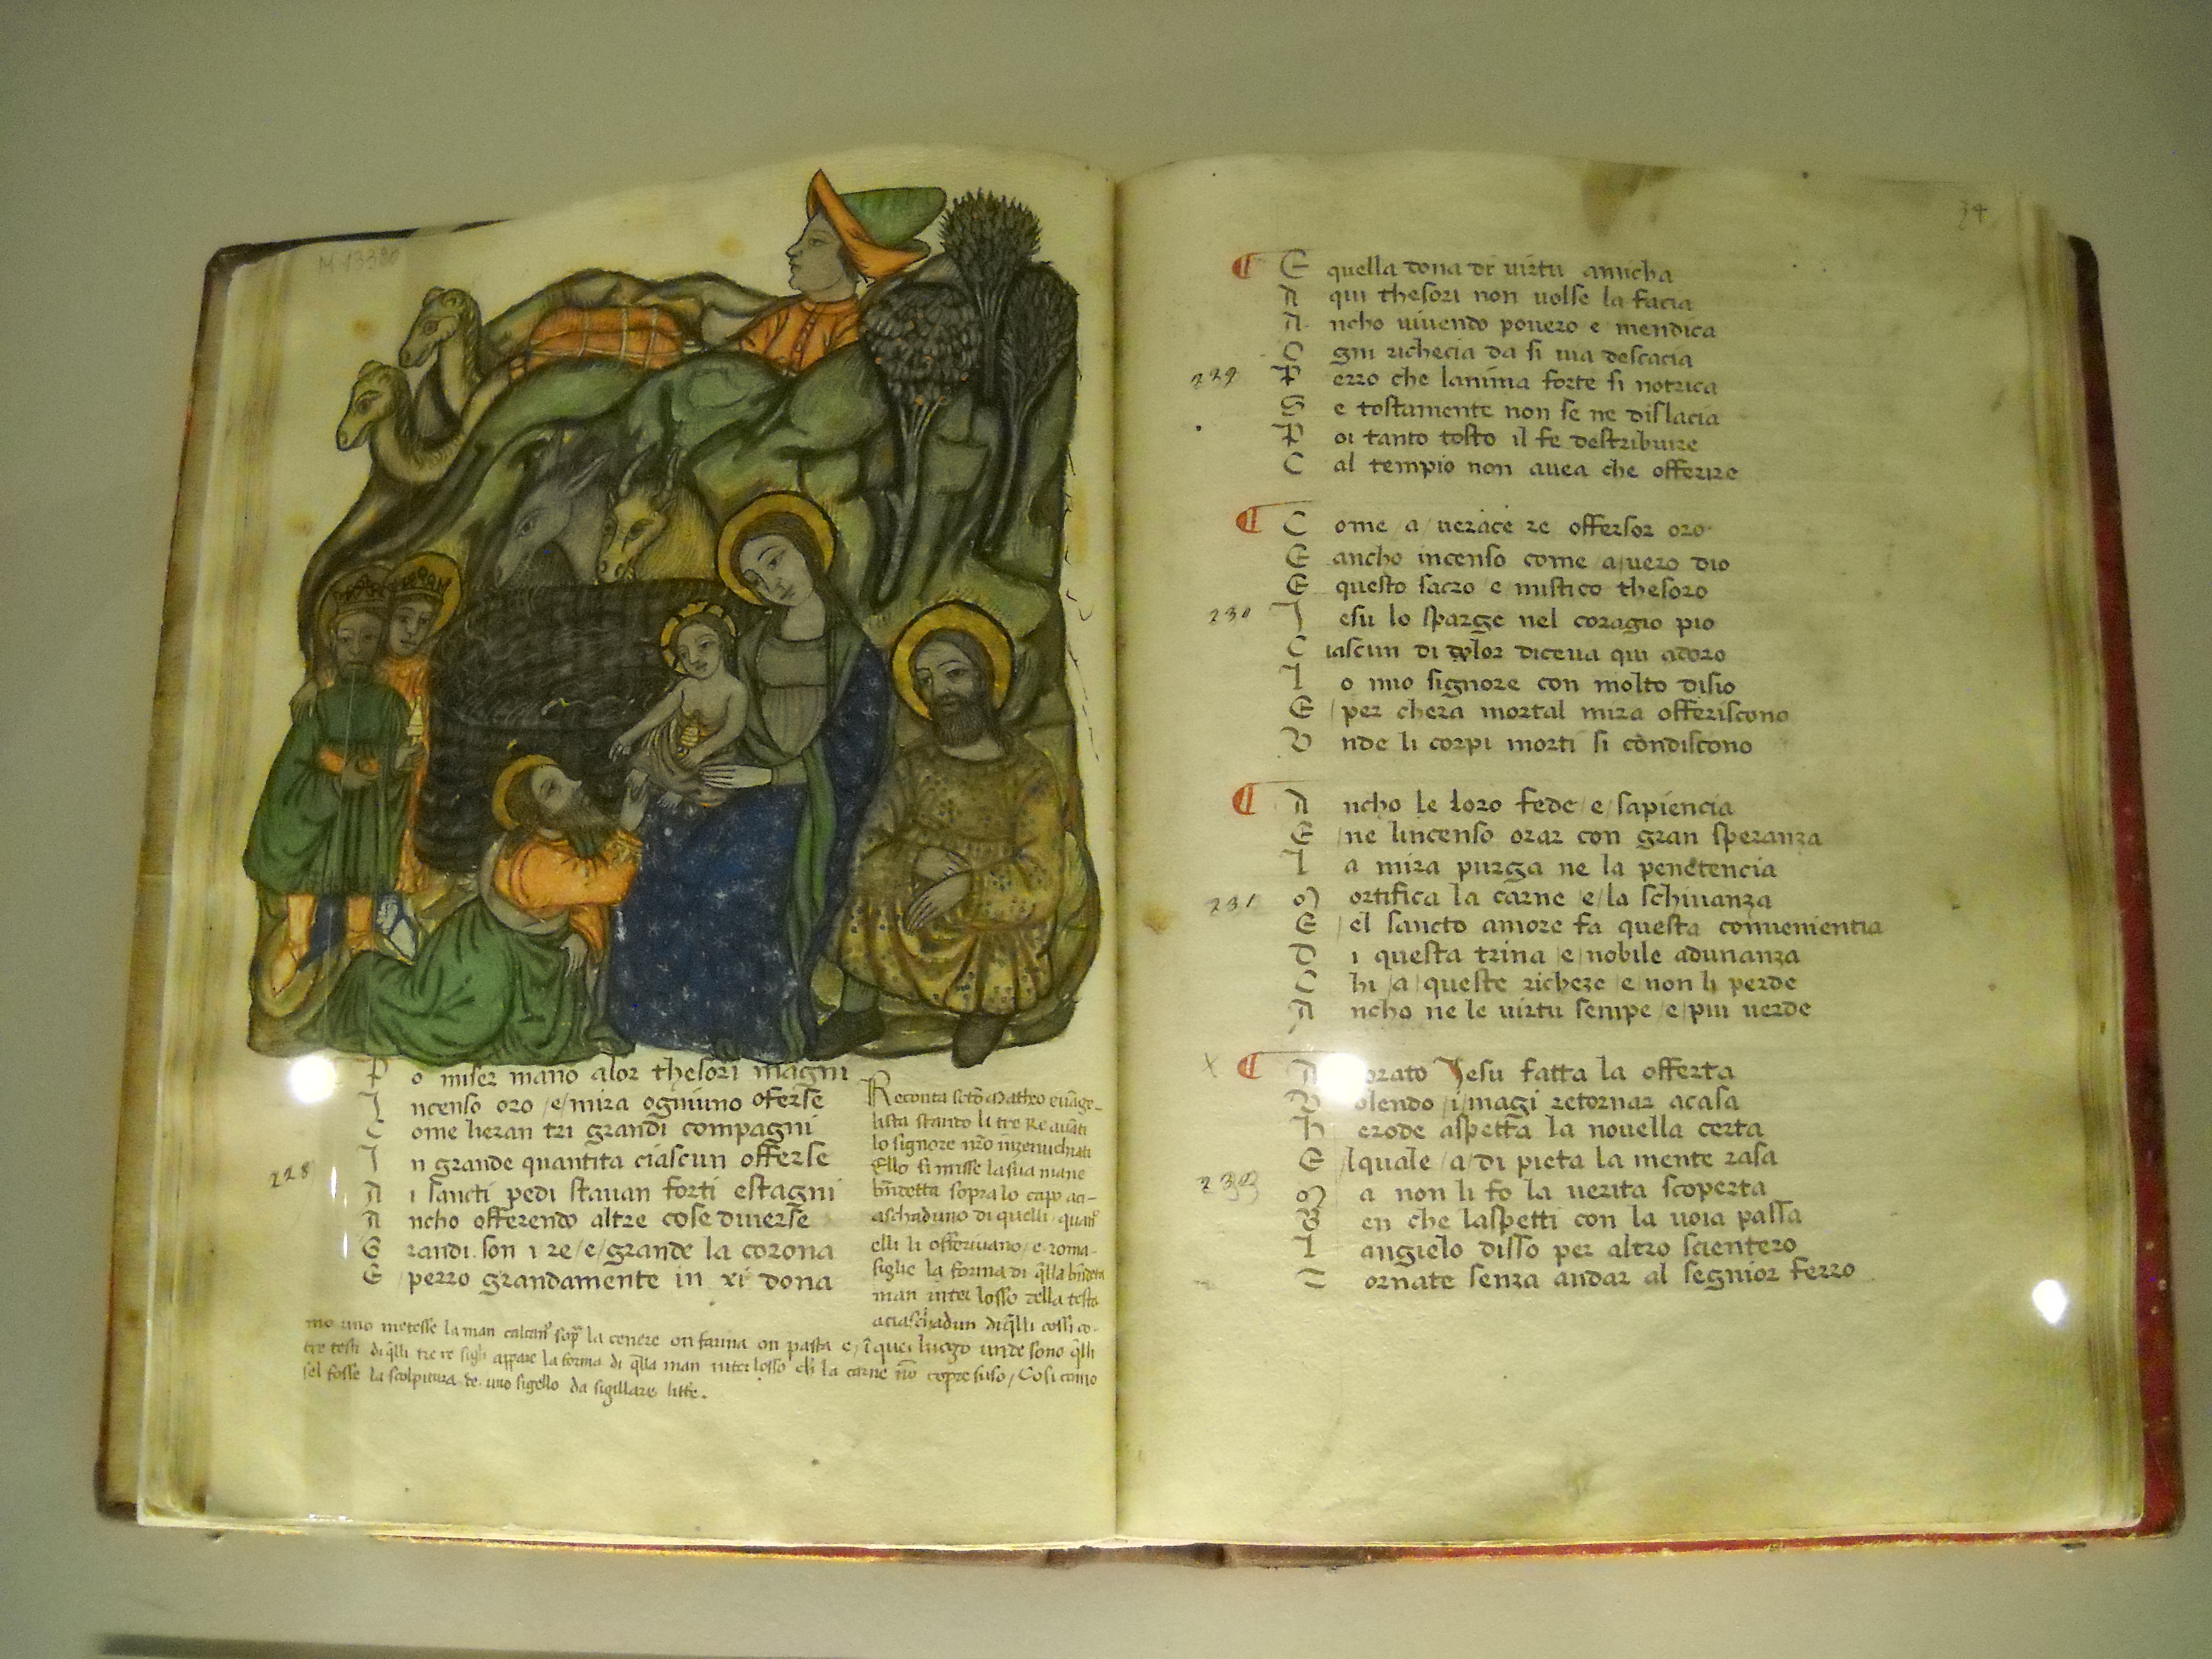 M 13380
P o miser mano alor thesori magni
I ncenso oro /e/ mira ogniuno oferse
C ome heran tri grandi compagni
I n grande quantita ciascun offerse
228
A i sancti pedi stavan forti estagni
A ncho offerendo altre cose diverse
G randi son i re /e/ grande la corona
E perzo grandamente in xi dona
Reconta scto Matteo evãge-
lista stando li tre Re avãti
lo signore nr̃o inzenuchiati
Ello si misse la sua mane
bñdetta sopra lo capo aci-
aschaduno di quelli quañ
elli li offerivano /e roma-
siglie la forma di q̃lla bñdeta
man inter losso zella testa
aciaschadun di q̃lli cossi co-
mo uno metesse la man sop̃ la cenere on farina on pasta e/ ĩ quel luogo unde sono q̃lli
tre testi di q̃lli tre re sigli appare la forma di q̃lla man inter losso ch̃ la carne nõ copre suso / Cosi como
sel fosse la scolpitura de uno sigello da sigillare littẽ.
34
E quella dona di virtu amicha
A qui thesori non volse la facia
A ncho vivendo povero e mendica
O gni richecia da si via descacia
229
P erzo che lanima forte si notrica
S e tostamente non se ne dislacia
P oi tanto tosto il fe destribuire
C al tempio non avea che offerire
C ome /a/ verace re offersor oro
E ancho incenso come /a/ vero dio
E questo sacro e mistico thesoro
230
I esu lo sparge nel coragio pio
C iascun di color diceva qui adoro
I o mio signore con molto disio
E /per chera mortal mira offeriscono
U nde li corpi morti si condiscono
A ncho le loro fede /e/ sapiencia
E /ne lincenso orar con gran speranza
L a mira purga ne la penetencia
231
M ortifica la carne /e/ la schivanza
E /el sancto amore fa questa convenientia
D i questa trina /e/ nobile adunanza
C hi /a/ queste richeze /e/ non li perde
A ncho ne le virtu sempe /e/ piu verde
X
A orato Iesu fatta la offerta
V olendo /i/ magi retornar a casa
H erode aspetta la novella certa
E lquale /a/ di pieta la mente rasa
M a non li fo la verita scoperta
B en che laspetti con la voia passa
L angielo disso per altro scientero
T ornate senza andar al segnior ferro